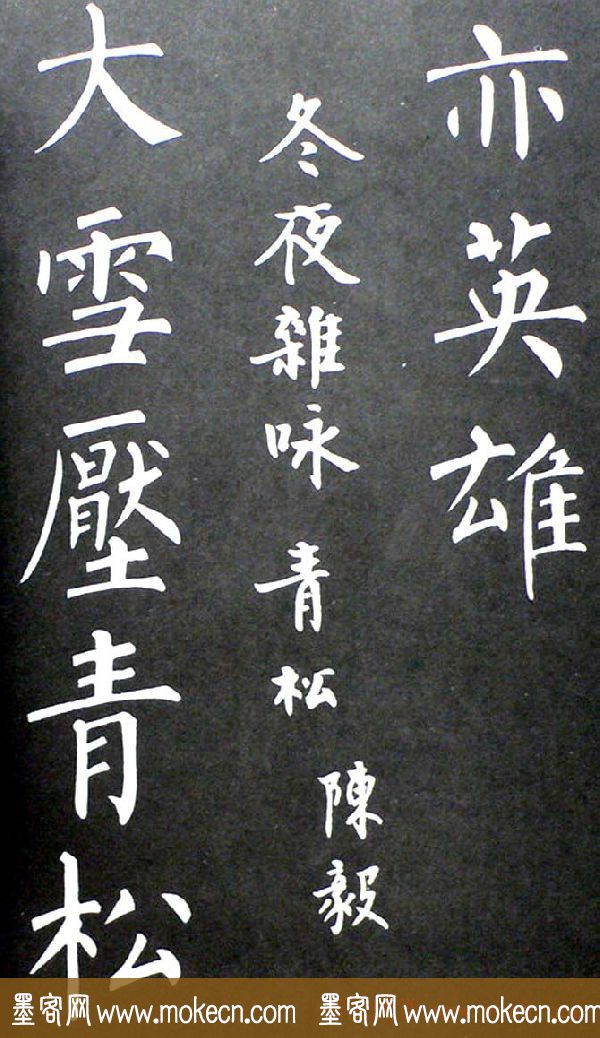 亦英雄
冬夜雜咏 青松
陳毅
大雪壓青松
墨客网 www.mokecn.com 墨客网 www.mokecn.com